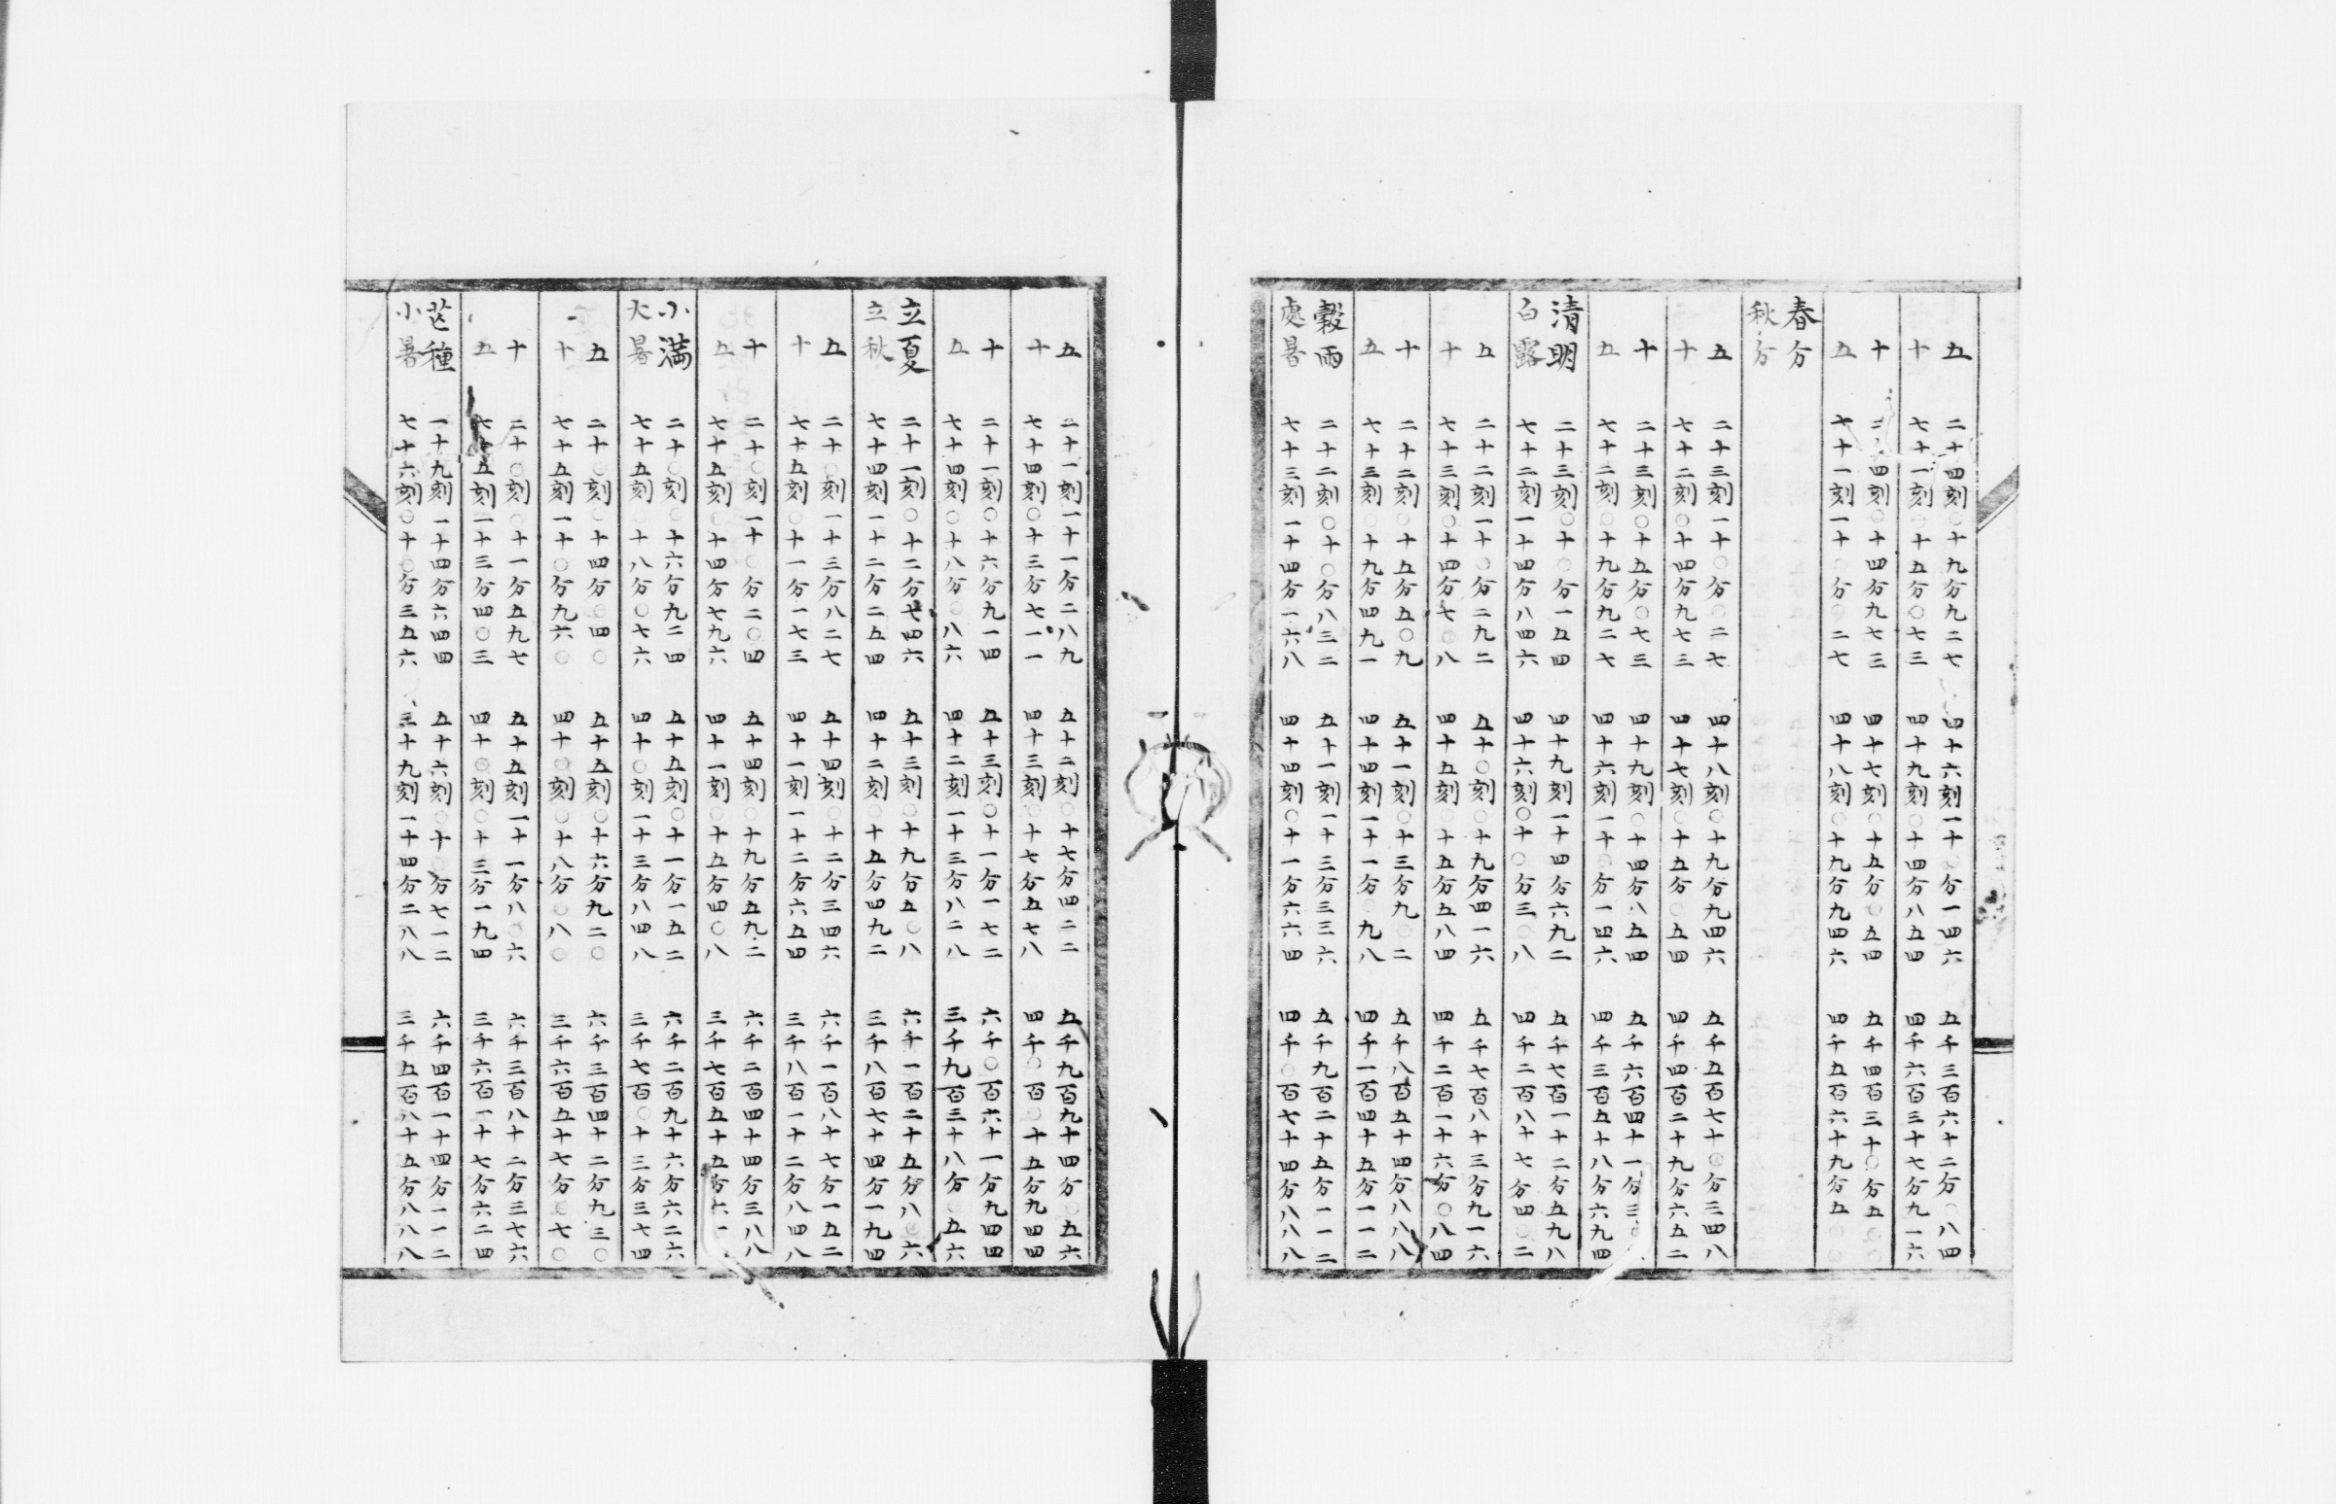 五 二十四刻○十九分九二七 四十六刻一十○分一四六 五千三百六十二分○八四
十 七十一刻○十五分○七三 四十九刻○十四分八五四 四千六百三十七分九一六
十 二十四刻○十四分九七三 四十七刻○十五分○五四 五千四百三十○分五○○
五 七十一刻一十○分○二七 四十八刻○十九分九四六 四千五百六十九分五○○
春分
秋分
五 二十三刻一十○分○二七 四十八刻○十九分九四六 五千五百七十○分三四八
十 七十二刻○十四分九七三 四十七刻○十五分○五四 四千四百二十九分六五二
十 二十三刻○十五分○七三 四十九刻○十四分八五四 五千六百四十一分三
五 七十二刻○十九分九二七 四十六刻一十○分一四六 四千三百五十八分六九四
清明 二十三刻○十○分一五四 四十九刻一十四分六九二 五千七百一十二分五九八
白露 七十二刻一十四分八四六 四十六刻○十○分三○八 四千二百八十七分四○二
五 二十二刻一十○分二九二 五十○刻○十九分四一六 五千七百八十三分九一六
十 七十三刻○十四分七○八 四十五刻○十五分五八四 四千二百一十六分○八四
十 二十二刻○十五分五○九 五十一刻○十三分九○二 五千八百五十四分八八八
五 七十三刻○十九分四九一 四十四刻一十一分○九八 四千一百四十五分一一二
穀雨 二十二刻○十○分八三二 五十一刻一十三分三三六 五千九百二十五分一一二
處暑 七十三刻一十四分一六八 四十四刻○十一分六六四 四千○百七十四分八八八
五 二十一刻一十一分二八九 五十二刻○十七分四二二 五千九百九十四分○五六
十 七十四刻○十三分七一一 四十三刻○十七分五七八 四千○百○十五分九四四
十 二十一刻○十六分九一四 五十三刻○十一分一七二 六千○百六十一分九四四
五 七十四刻○十八分○八六 四十二刻一十三分八二八 三千九百三十八分○五六
立夏 二十一刻○十二分七四六 五十三刻○十九分五○八 六千一百二十五分八○六
立秋 七十四刻一十二分二五四 四十二刻○十五分四九二 三千八百七十四分一九四
五 二十○刻一十三分八二七 五十四刻○十二分三四六 六千一百八十七分一五二
十 七十五刻○十一分一七三 四十一刻一十二分六五四 三千八百一十二分八四八
十 二十○刻一十○分二○四 五十四刻○十九分五九二 六千二百四十四分三八八
五 七十五刻○十四分七九六 四十一刻○十五分四○八 三千七百五十五分六一
小滿 二十○刻○十六分九二四 五十五刻○十一分一五二 六千二百九十六分六二六
大暑 七十五刻○十八分○七六 四十○刻一十三分八四八 三千七百○十三分三七四
五 二十○刻○十四分○四○ 五十五刻○十六分九二○ 六千三百四十二分九三○
十 七十五刻一十○分九六○ 四十○刻○十八分○八○ 三千六百五十七分○七○
十 二十○刻○十一分五九七 五十五刻一十一分八○六 六千三百八十二分三七六
五 七十五刻一十三分四○三 四十○刻○十三分一九四 三千六百一十七分六二四
芒種 一十九刻一十四分六四四 五十六刻○十○分七一二 六千四百一十四分一一二
小暑 七十六刻○十○分三五六 三十九刻一十四分二八八 三千五百八十五分八八八